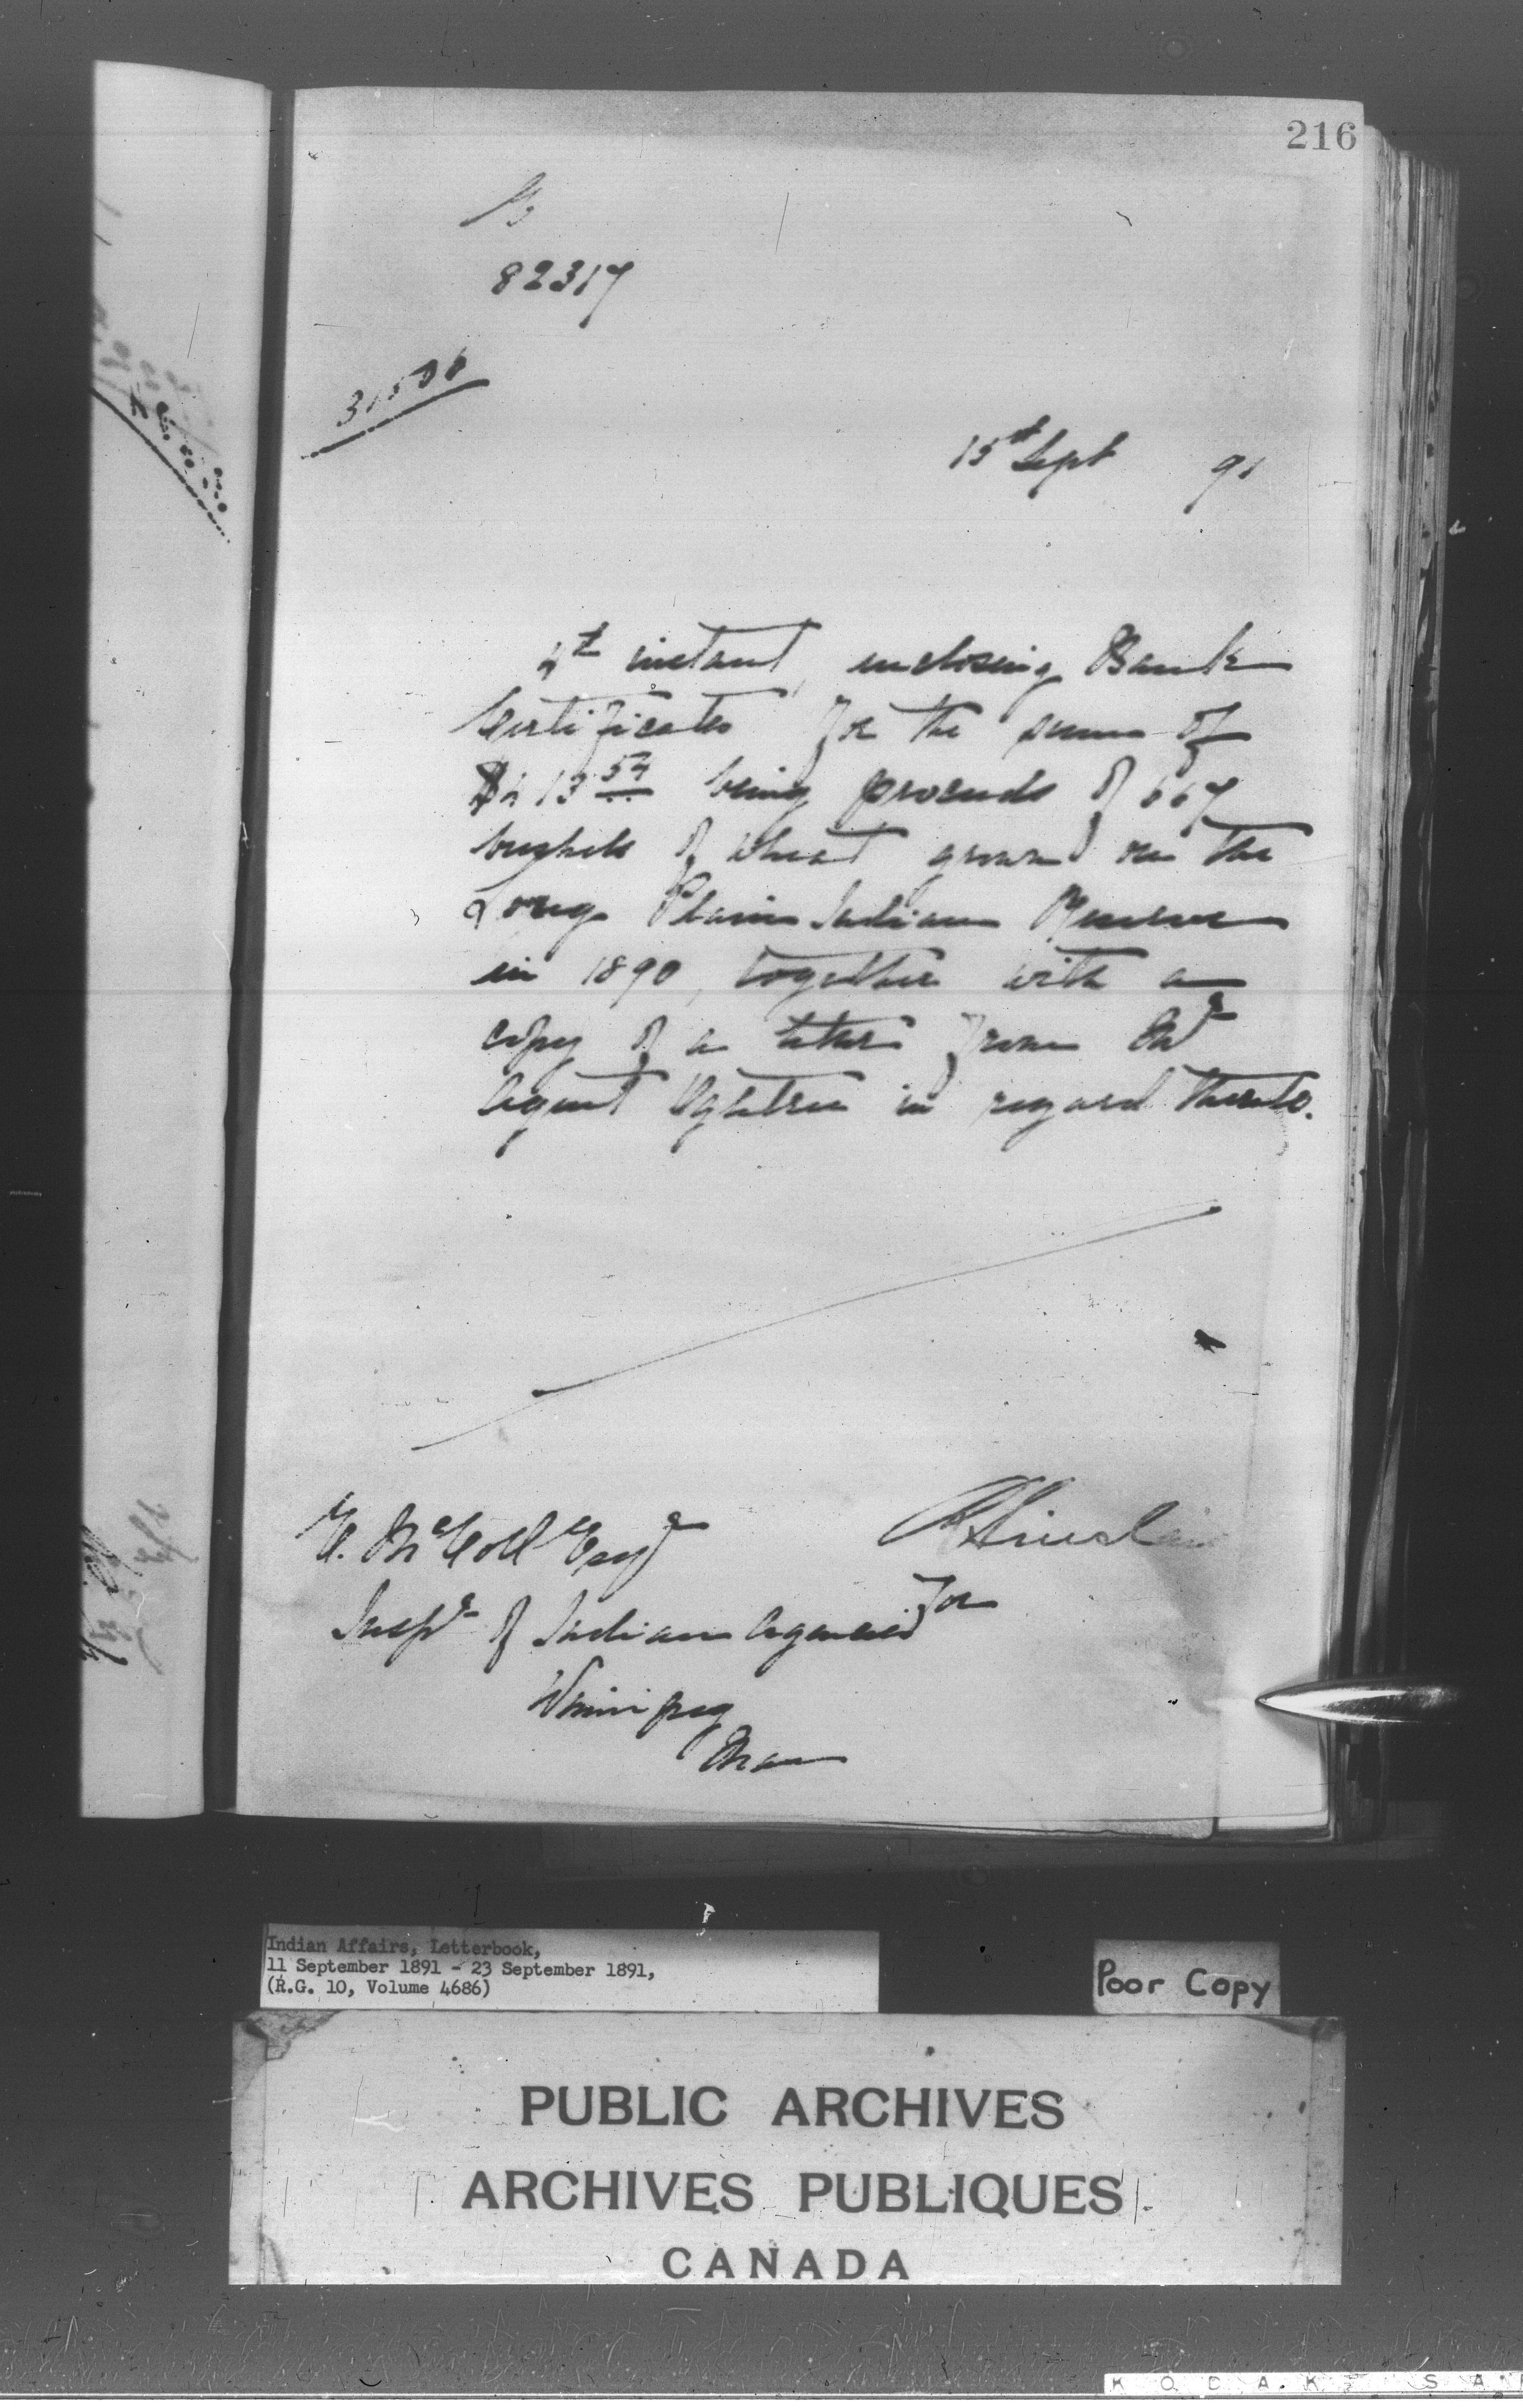 216
82317
31506
15th Sept 91
4th instant, enclosing Bank
Certificates for the sum of
$413 54 being proceeds of 667
bushels of wheat grown on the
Long Plain Indian Reserve
in 1890, together with a
copy of a letter from Mr
Agent Ogletree in regard thereto.
E. McColl Esqr
R Sinclair
for
Inspr of Indian Agencies
Winnipeg
Man
Indian Affairs, Letterbook,
11 September 1891 - 23 September 1891,
(R.G. 10, Volume 4686)
Poor Copy
PUBLIC ARCHIVES
ARCHIVES PUBLIQUES
CANADA
KODAK SA